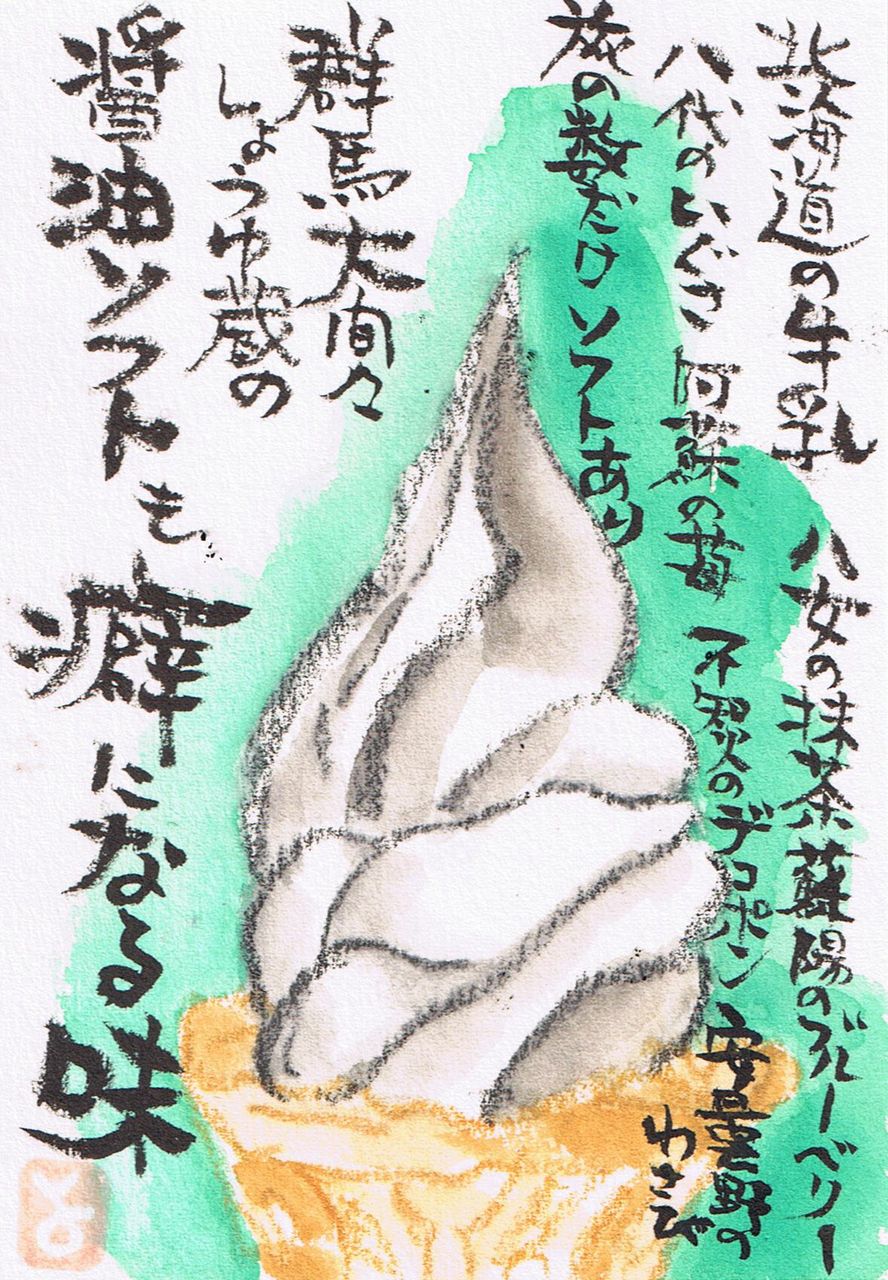 北海道の牛乳 八女の抹茶 蘇陽のブルーベリー
八代のいぐさ 阿蘇の苺 不知火のデコポン 安曇野のわさび
旅の数だけソフトあり
群馬大間々
しょうゆ蔵の
醤油ソフトも癖になる味